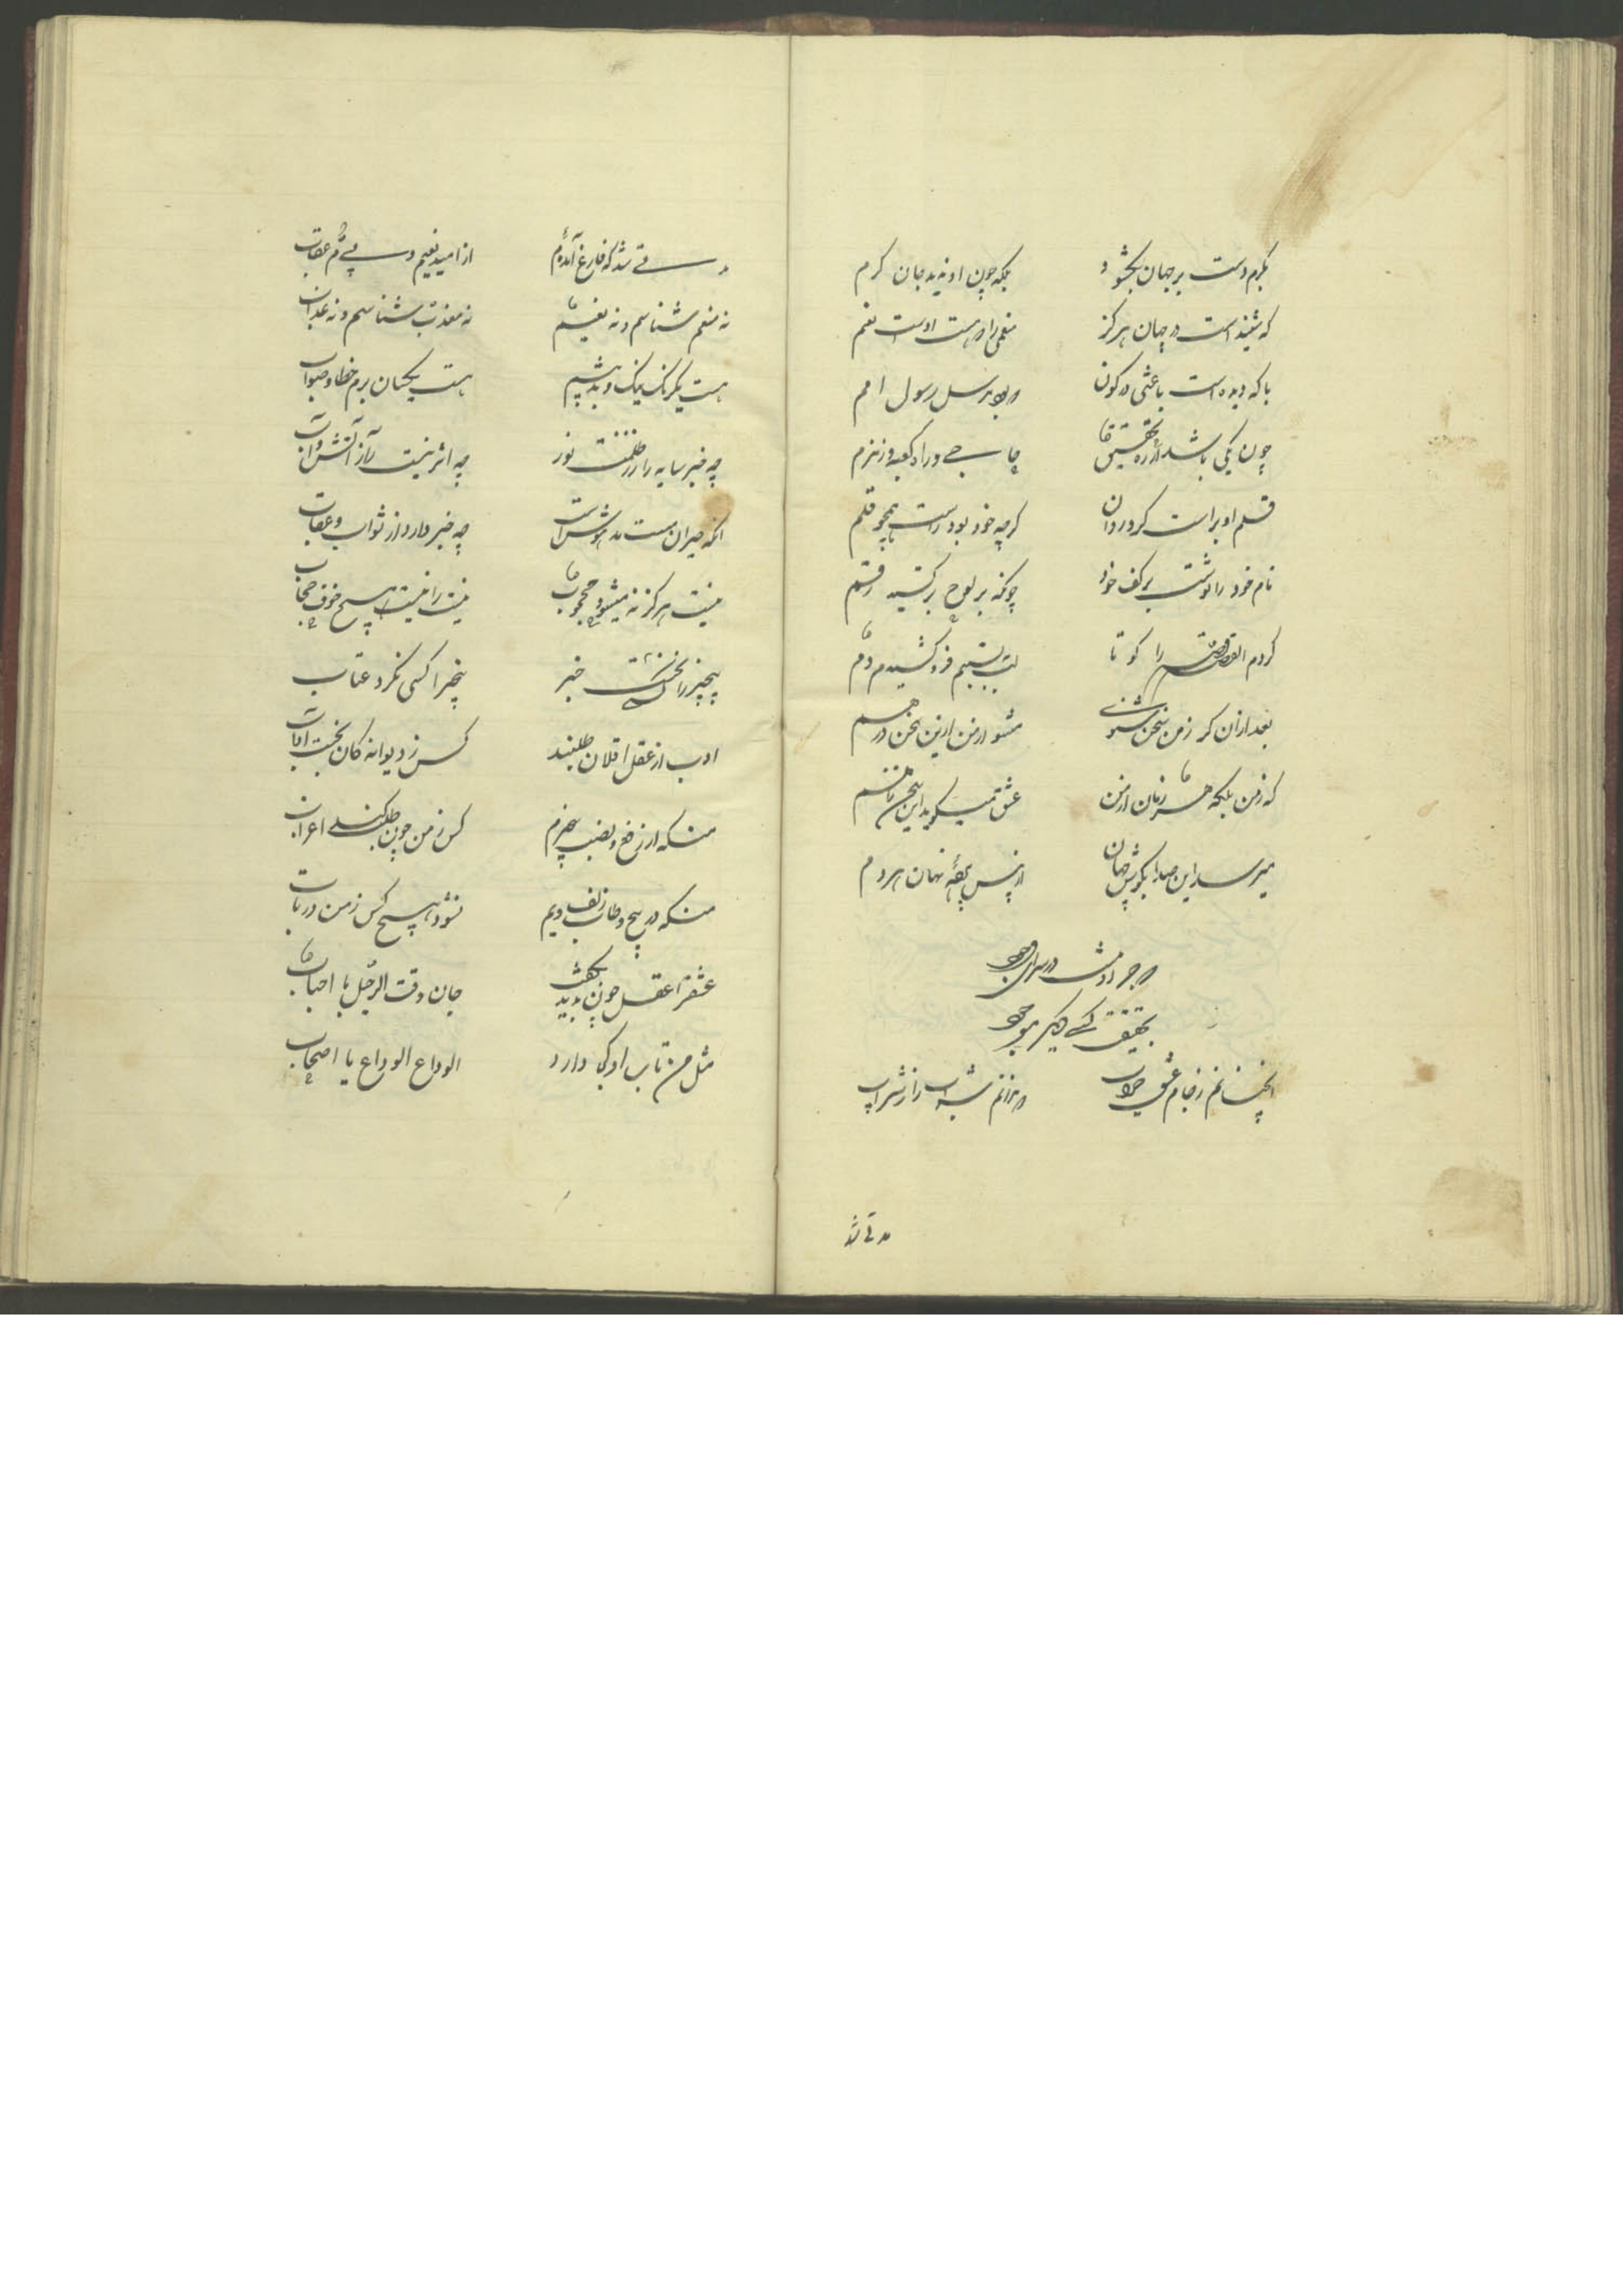 بکرم دست بر جهان بکشود بلکه چون او ندید جان کرم
که شنیداست در جهان هرکز منعمی را که هست اوست نعم
یا که دیده است باعثی در کون رسول امم
چون یکی باشد از ره تحقیق کعبه و زمزم
قلم او براست کردن کرچه خود بود راست همچو قلم
نام خود را نوشت بر کف خود چونکه بر لوح بر کشید رقم
کردم القصه قصه را کوتا لب ببستیم فرو کشیدم دم
بعد ازان کر ز من سخن شنوی مشو از من ازین سخن درهم
که نه من بلکه هر زمان از من عشق میکوید این سخن نه منم
میرسد این صدا بکوش جهان از پس پرده نهان هر دم
که جز او نیست در سرای وجود
بحقیقت کسی دکر موجود
آنچنانم ز جام عشق خراب که ندانم شراب را ز شراب
مدتی شد
مدتی شد که فارغ آمده‌ام از امید نعیم و بیم عقاب
نه منعم شناسم و نه نعیم نه معذب شناسم و نه عذاب
هست یکرنک نیک و بد پیشم هست یکسان برم خطا و صواب
چه خبر سایه را ز ظلمت نور چه اثر نیست را ز آتش و آب
آنکه حیران و مست و مدهوش است چه خبر دارد از ثواب و عقاب
نیست هرکز نمیشود محجوب نیست را نیست هیچ خوف حجاب
بیخبر را کسی نکفت خبر بیخبر را کسی نکرد عتاب
ادب از عقل طلبند کس ز دیوانه کان نجست آداب
منکه از رفع و نصب بیخبرم کس ز من چون طلب کند اعراب
منکه در پیچ و تاب زلف ویم نشود هیچ کس ز من در تاب
عشق را عقل چون بدید بکفت حان وقت الرحیل یا احباب
مثل من تاب او کجا دارد الوداع الوداع یا اصحاب